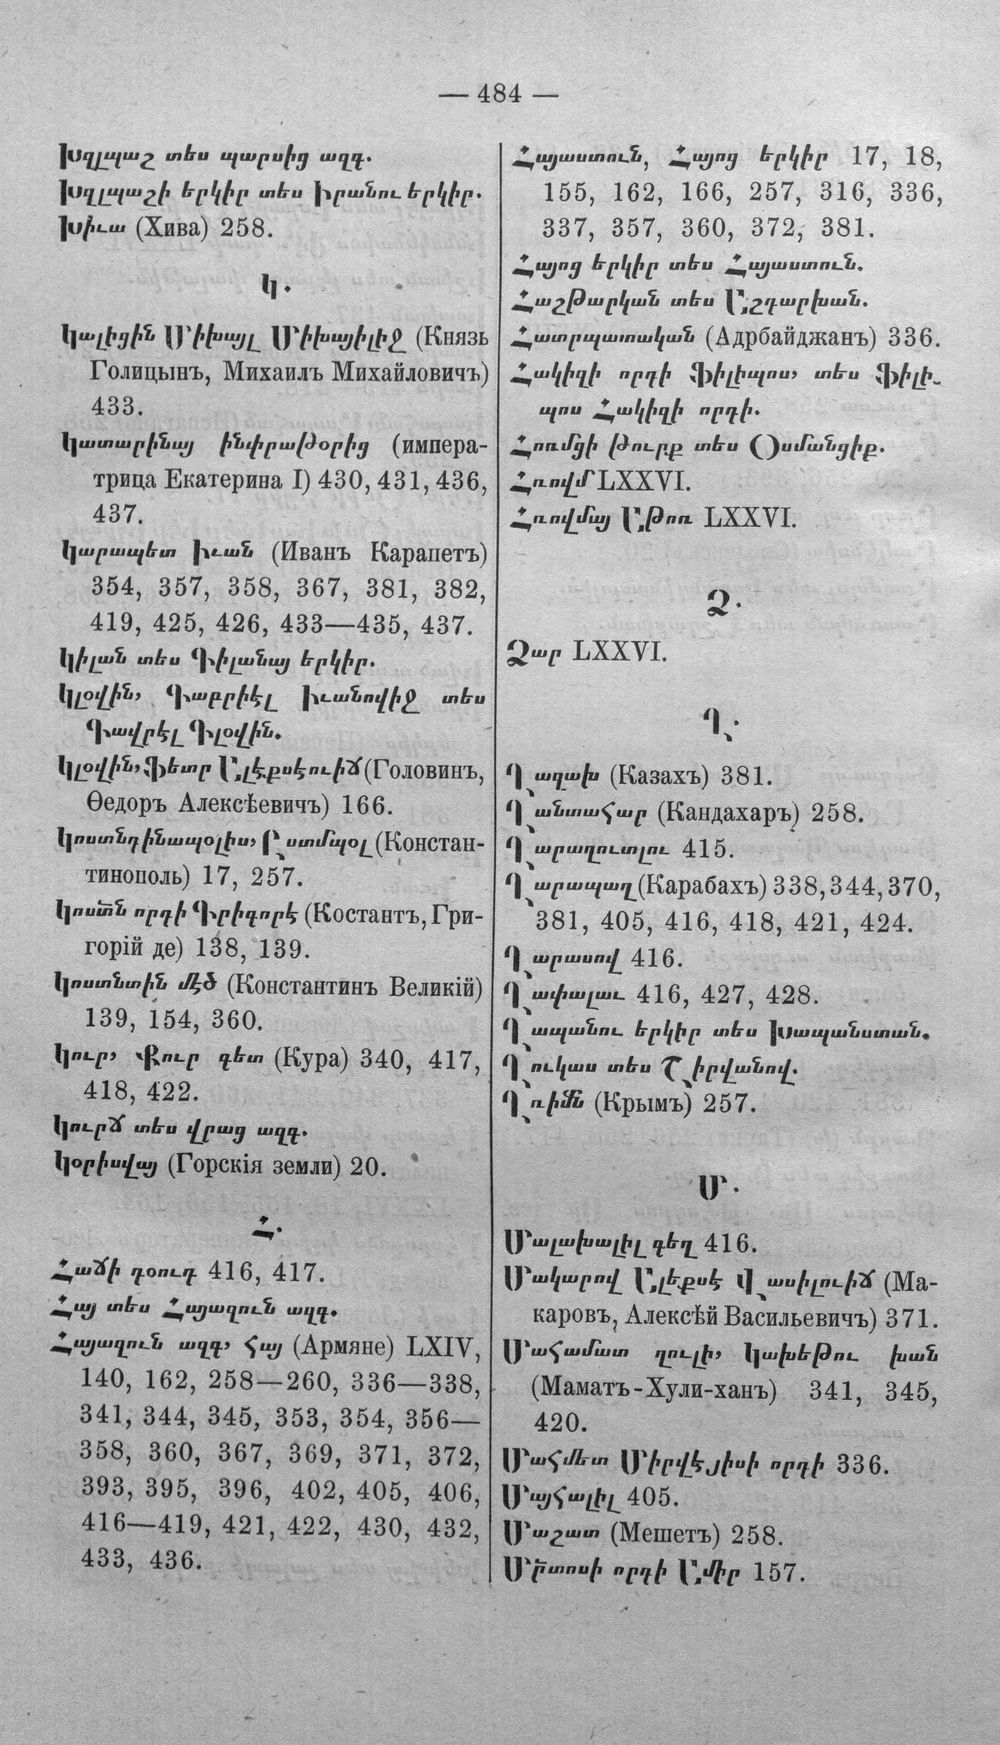 — 484 —
Խզլպաշ տես պարսից ազգ.
Խզլպաշի երկիր տես Իրանու երկիր.
Խիւա (Хива) 258.
Կ.
Կալիցին Միխայլ Միխայիլիջ (Князь
Голицынъ, Михаилъ Михайловичъ)
433.
Կատարինայ ինփրաթօրից (импера-
трица Екатерина I) 430, 431, 436,
437.
Կարապետ Իւան (Иванъ Карапетъ)
354, 357, 358, 367, 381, 382,
419, 425, 426, 433—435, 437.
Կիլան տես Գիլանայ երկիր.
Կլօվին, Գաբրիէլ Իւանովիջ տես
Գավրէլ Գլօվին.
Կլօվին, Ֆետր Ալէքսէուիճ (Головинъ,
Ѳедоръ Алексѣевичъ) 166.
Կոստնդինապօլիս, Ըստմպօլ (Констан-
тинополь) 17, 257.
Կոստն որդի Գրիգորէ (Костантъ, Гри-
горій де) 138, 139.
Կոստնտին մէծ (Константинъ Великій)
139, 154, 360.
Կուր, Քուր գետ (Кура) 340, 417,
418, 422.
Կուրճ տես վրաց ազգ.
Կօրիսվայ (Горскія земли) 20.
Հ.
Հաճի դօուդ 416, 417.
Հայ տես Հայազուն ազգ.
Հայազուն ազգ, Հայ (Армяне) LXIV,
140, 162, 258—260, 336—338,
341, 344, 345, 353, 354, 356—
358, 360, 367, 369, 371, 372,
393, 395, 396, 402, 405, 406,
416—419, 421, 422, 430, 432,
433, 436.
Հայաստուն, Հայոց երկիր 17, 18,
155, 162, 166, 257, 316, 336,
337, 357, 360, 372, 381.
Հայոց երկիր տես Հայաստուն.
Հաշթարկան տես Աշդարխան.
Հատրպատական (Адрбайджанъ) 336.
Հակիզի որդի Ֆիլիպոս, տես Ֆիլի-
պոս Հակիզի որդի.
Հոռմցի թուրք տես Օսմանցիք.
Հռովմ LXXVI.
Հռովմայ Աթոռ LXXVI.
Ձ.
Ձար LXXVI.
Ղ.
Ղազախ (Казахъ) 381.
Ղանտահար (Кандахаръ) 258.
Ղարաղուտլու 415.
Ղարապաղ (Карабахъ) 338, 344, 370,
381, 405, 416, 418, 421, 424.
Ղարասով 416.
Ղափալաւ 416, 427, 428.
Ղապանու երկիր տես Խապանստան.
Ղուկաս տես Շիրվանով.
Ղռիմն (Крымъ) 257.
Մ.
Մալախալիլ գեղ 416.
Մակարով Ալեքսէ Վասիլուիճ (Ма-
каровъ, Алексѣй Васильевичъ) 371.
Մահամատ ղուլի, Կախեթու խան
(Маматъ-Хули-ханъ) 341, 345,
420.
Մահմետ Միրվէյիսի որդի 336.
Մայհալիլ 405.
Մաշատ (Мешетъ) 258.
Մրտոսի որդի Ամիր 157.